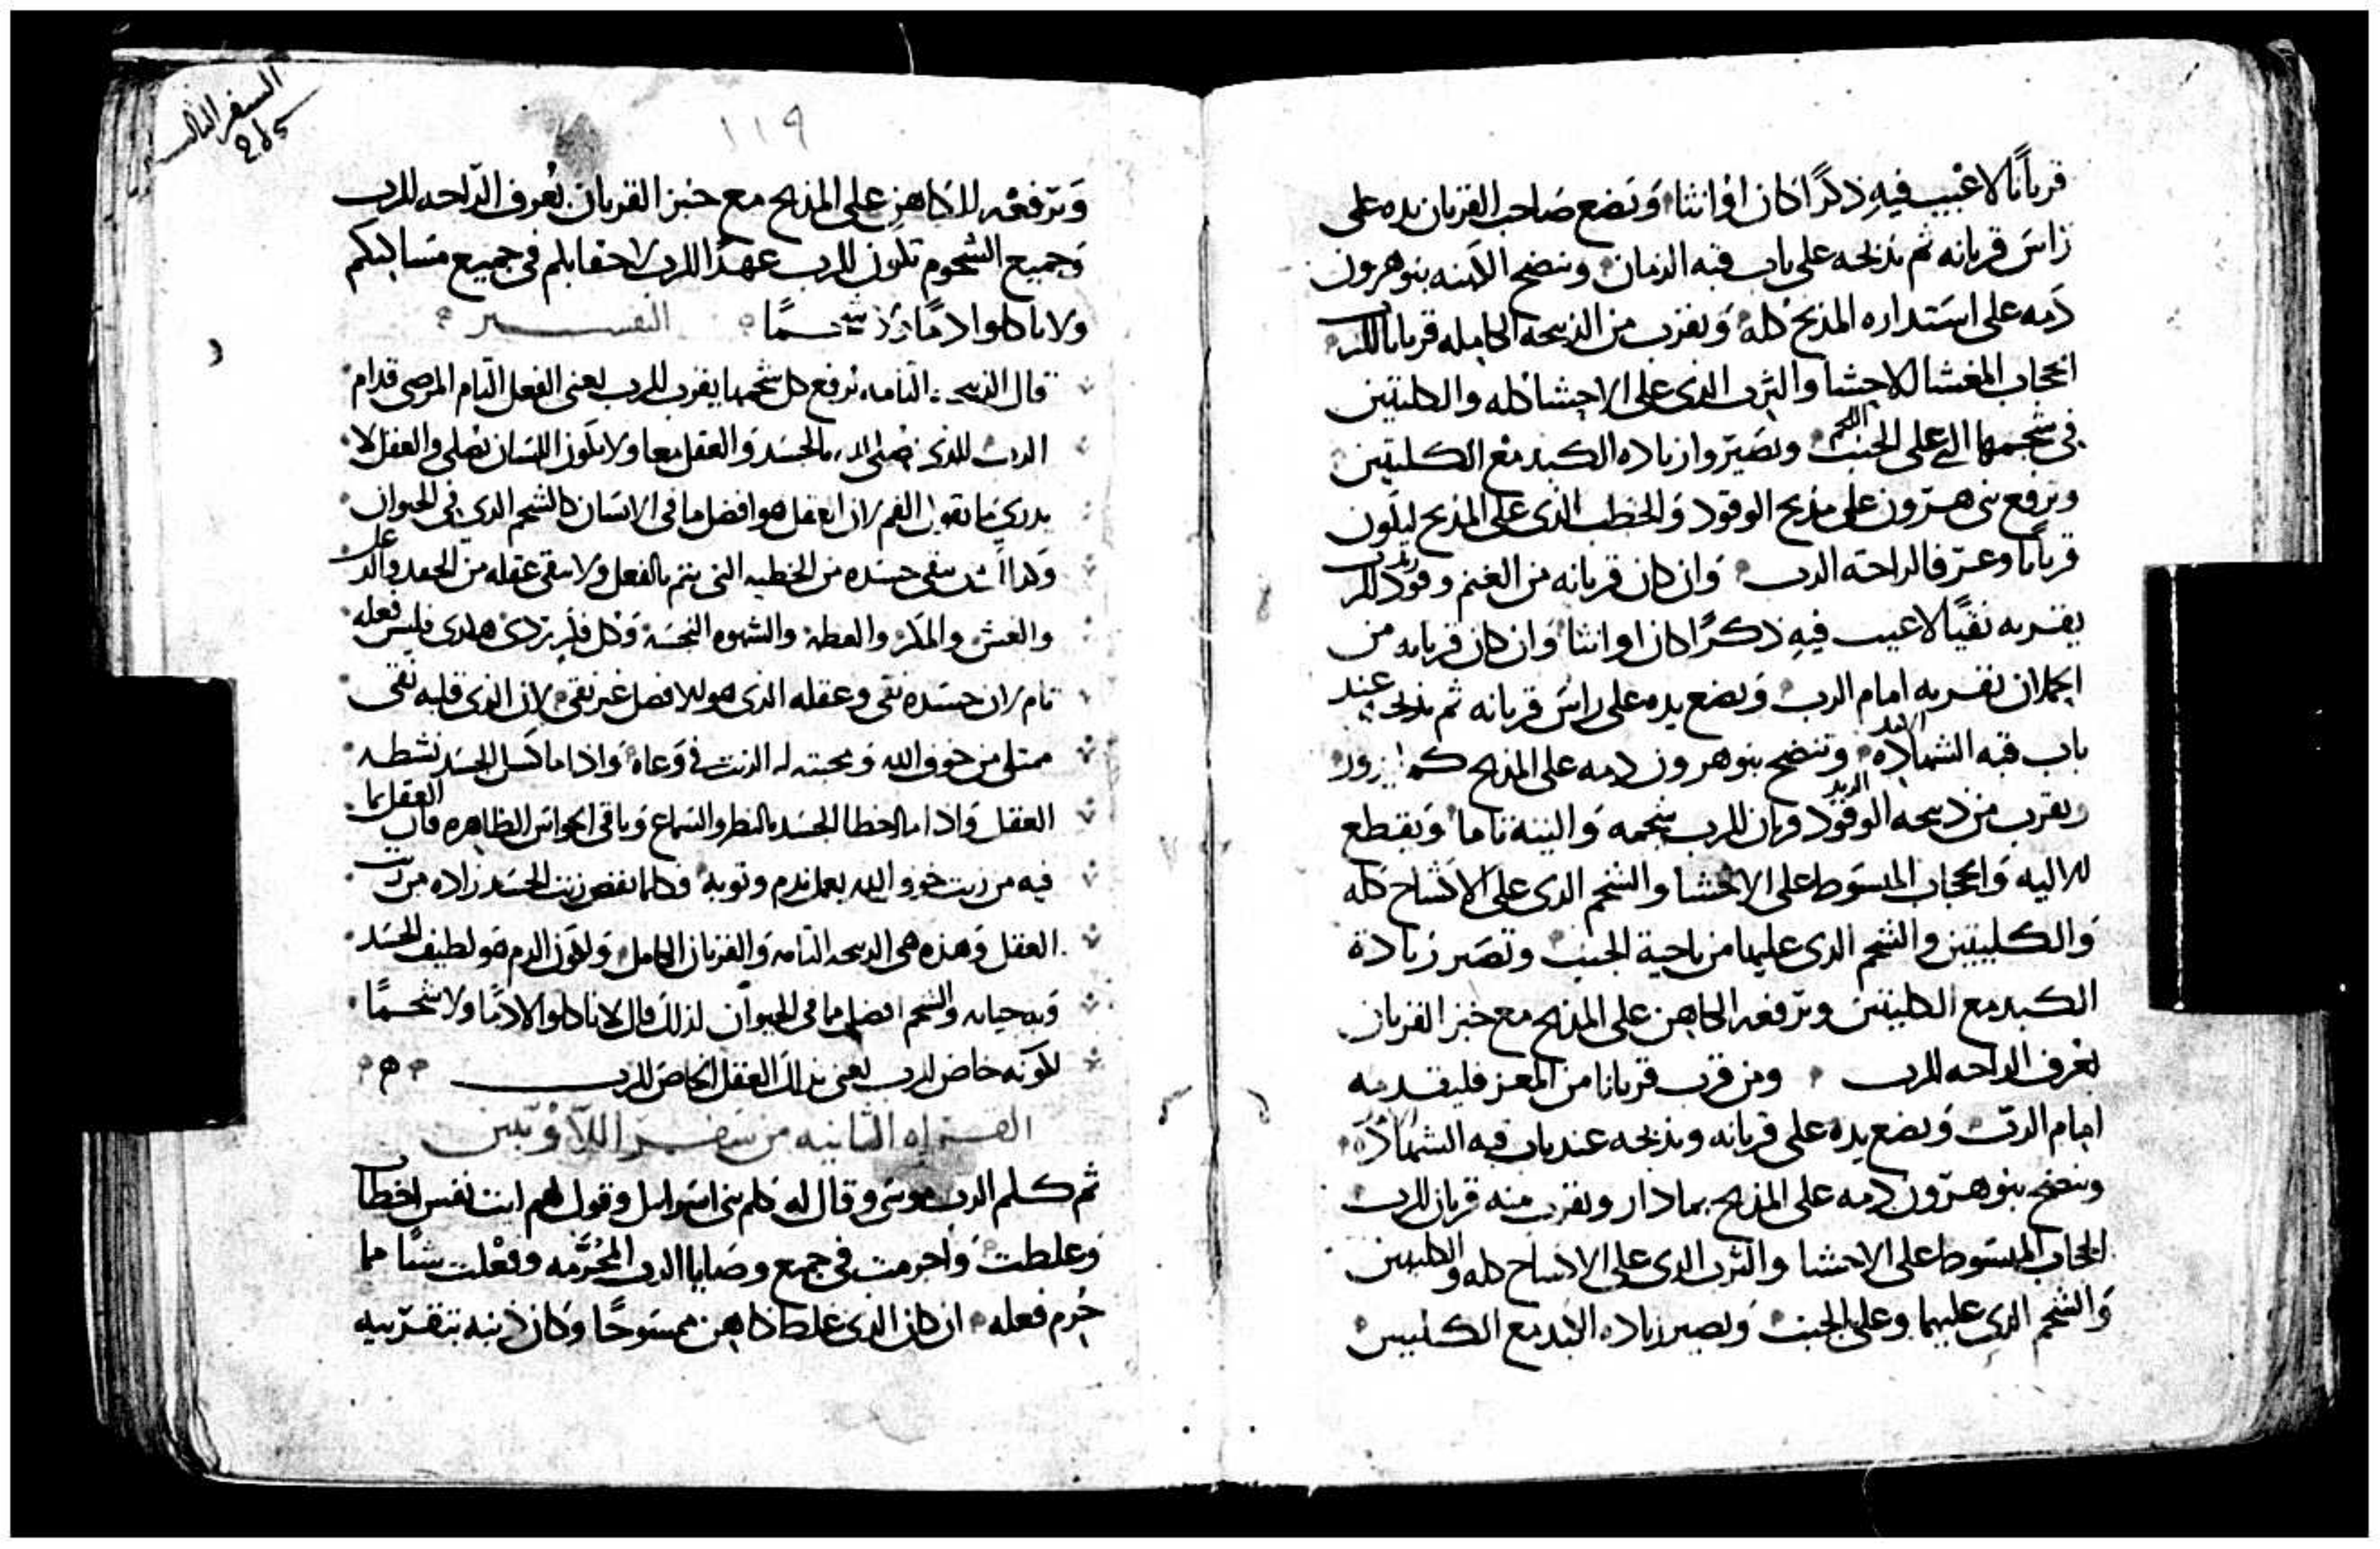 قرباناً لا عيب فيهِ ذكرًا كان او انثا وَتضع صَاحب القربان يده على
رَاسَ قربانه ثم يذبحه على باب قبه الزمان وينضح الكهنه بنو هرون
دَمه على استداره المذبح كله وَيقرب من الذبيحه الكامله قربانا للرب
الحجاب المغشا للاحشا والثرب الذى على الاحشا كله والكليتين
فى شحمهما التى على الجنب وتصَيّر زياده الكبد مع الكليتين
وترفع بنى هرّون على مذبح الوقود وَالحطب الذى على المذبح ليكون
قرباناً وعرفا لراحة الرب وَان كان قربانه من الغنم وقود للرب
يقربه نقيًا لا عيب فيهِ ذكرًا كان او انثا وَان كان قربانه من
الحملان يقربه امام الرب وَيضع يده على راسَ قربانه ثم يذبحه عند
باب قبه الشهاده وتنضح بنو هرون دمه على المذبح كما يدور
ويقرب من ذبيحه الوقود قربان للرب شحمه وَالينه تاما وَيقطع
الاليه وَالحجاب المبسوط على الاحشا والشحم الذى على الاكشاح كله
وَالكليتين والشحم الذى عليهما من ناحية الجنب وتصَير زيادة
الكبد مع الكليتين وترفعه الكاهن على المذبح مع خبز القربان
بعُرف الراحه للرب ومن قرب قربانا من المعز فليقدمه
امام الربّ وَيضع يده على قربانه ويذبحه عند باب قبه الشهادَه
وينضح بنو هرّون دمه على المذبح بما دار ويقرب منه قربان للرب
الحجاب المبسَوط على الاحشا والثرب الذى على الاكشاح كله والكليتين
وَالشحم الذى عليهما وعلى الجنب وَيصير زياده الكبد مع الكليتين
السفر الثالث
١١٩
وَترفعه للكاهنِ على المذبح مع خبز القربان بعُرف الرّاحه للرب
وَجميع الشحوم تكون للرب عهدًا للرب لاحقابكم فى جميع مسَاكنكم
ولا تاكلوا دمًا ولا شحمًا التفسير
قال الذبيحه التامه ترفع كل شحمها يقرب للرب يعنى الفعل التام المرضى قدام
الرب للذى يصلى له بالجسَد وَالعقل معا ولا يكون اللسَان يصلى والعقل لا
يدرى ما تقول الفم لان العقل هو افضل ما فى الانسَان كالشحم الذى فى الحيوان
ينقى جسَده من الخطيه التى يتم بالفعل ولا ينقى عقله من الحقد
والغش والمكر والشهوه النجسَه وَكل فكر ردى هكدى فليس فعله
تام لان جسَده نقى وعقله الذى هو للافضل غير نقى لان الذى قلبه نقى
ممتلى من خوف الله وَمحبته له الزيت فى وَعاه وَاذا ما كسَل الجسَد نشطه
العقل وَاذا ما اخطا الجسَد بالنظر والسماع وَباقى الحواسَ الظاهره فان العقل بما
فيه من زيت خوف الله يعمل ندم وتوبه فكلما نقص زيت الجسَد زاده من زيت
العقل وَهذه هى الذبيحه التامه وَالقربان الكامل وَلكون الدم هو لطيف الجسَد
وَبه حياته والشحم افضل ما فى الحيوان لذلك قال لا تاكلوا لا دمًا ولا شحمًا
لكونه خاص للرب يعنى بذلك العقل الخاصَ للرب
القراه الثانيه من سَفر اللاّوَيين
ثم كلم الرب موسى وقال له كلم بنى اسَرايل وقول لهم ايت نفس اخطات
وَغلطت وَاجرمت فى جميع وصَايا الرب المحُرَّمه وفعْلت شيًا مما
حُرم فعله ان كان الذى غلط كاهن ممسَوحًا وَكان ذنبه